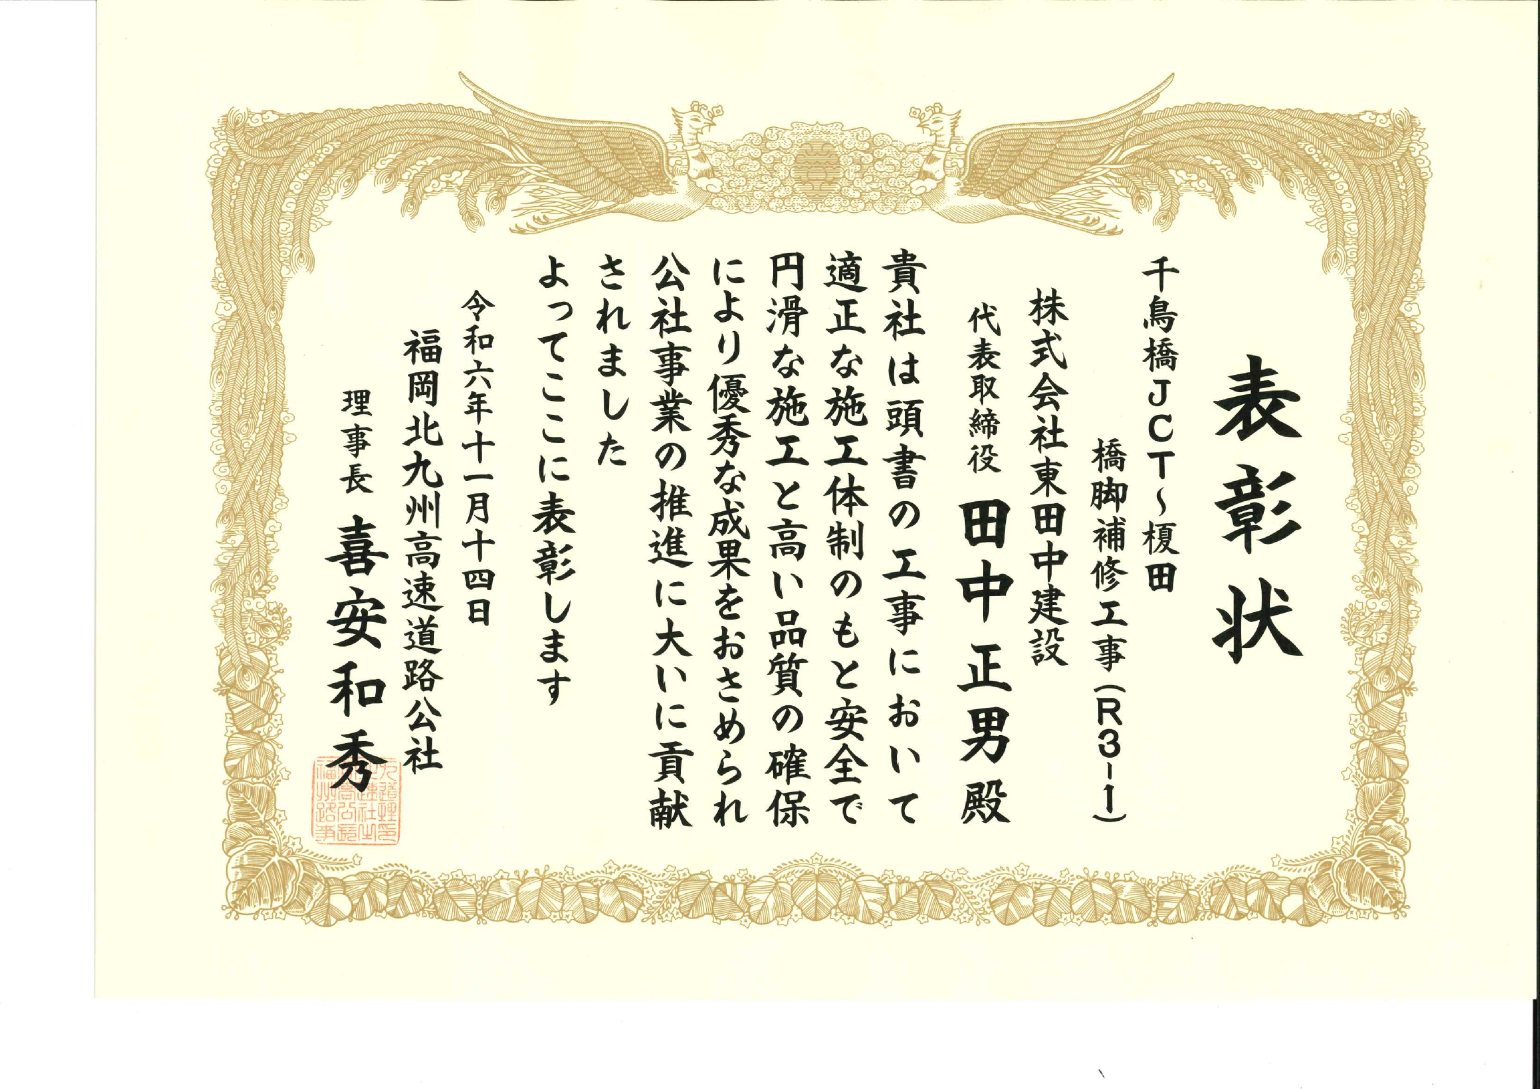 表彰状
千鳥橋JCT~榎田
橋脚補修工事(R3-1)
株式会社東田中建設
代表取締役 田中正男殿
貴社は頭書の工事において
適正な施工体制のもと安全で
円滑な施工と高い品質の確保
により優秀な成果をおさめられ
公社事業の推進に大いに貢献
されました
よってここに表彰します
令和六年十一月十四日
福岡北九州高速道路公社
理事長 喜安和秀